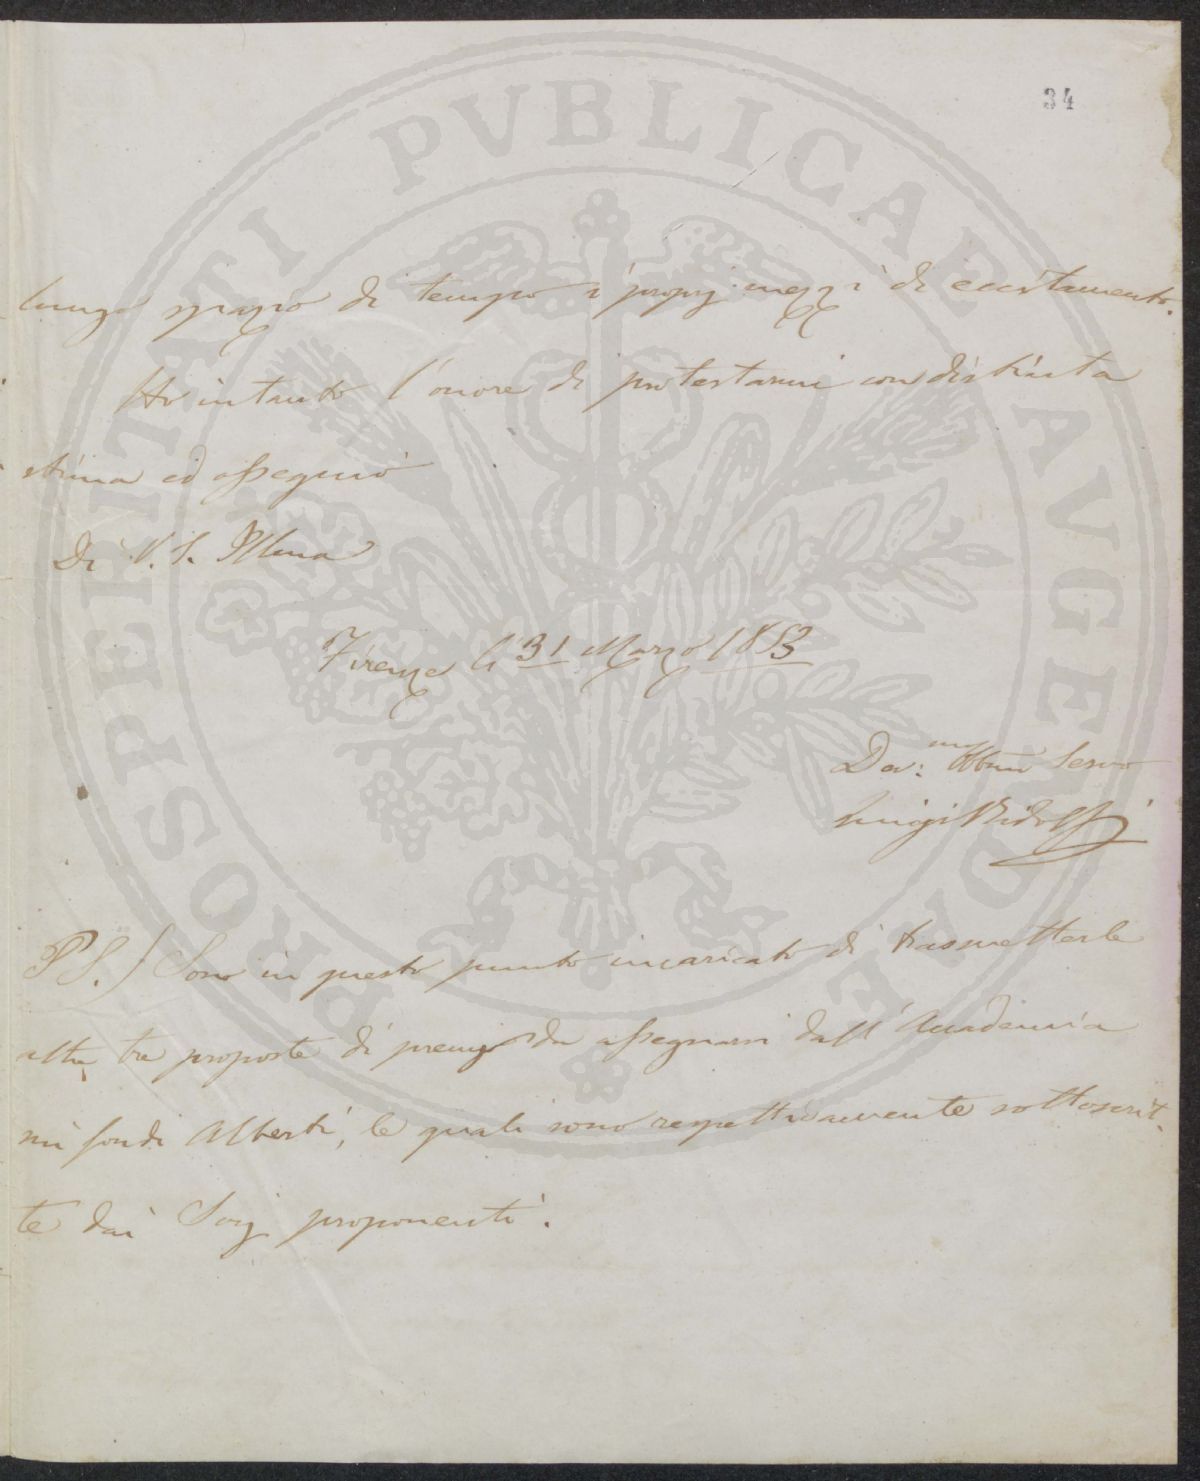 34
lungo spazio di tempo i proprj mezzi di eccitamento.
Ho intanto l'onore di protestarmi con distinta
stima ed assequio
Di V. S. Illma
Firenze li 31 Marzo 1853
Dev:mo Obbmo Servo
Luigi Ridolfi
PS.) Sono in questo punto incaricato di trasmetterle
altre tre proposte di premj da assegnarsi dall'Accademia
sui fondi Alberti, le quali sono respettivamente sottoscrit-
te dai Socj proponenti.
PROSPERITATI PVBLICAE AVGENDAE